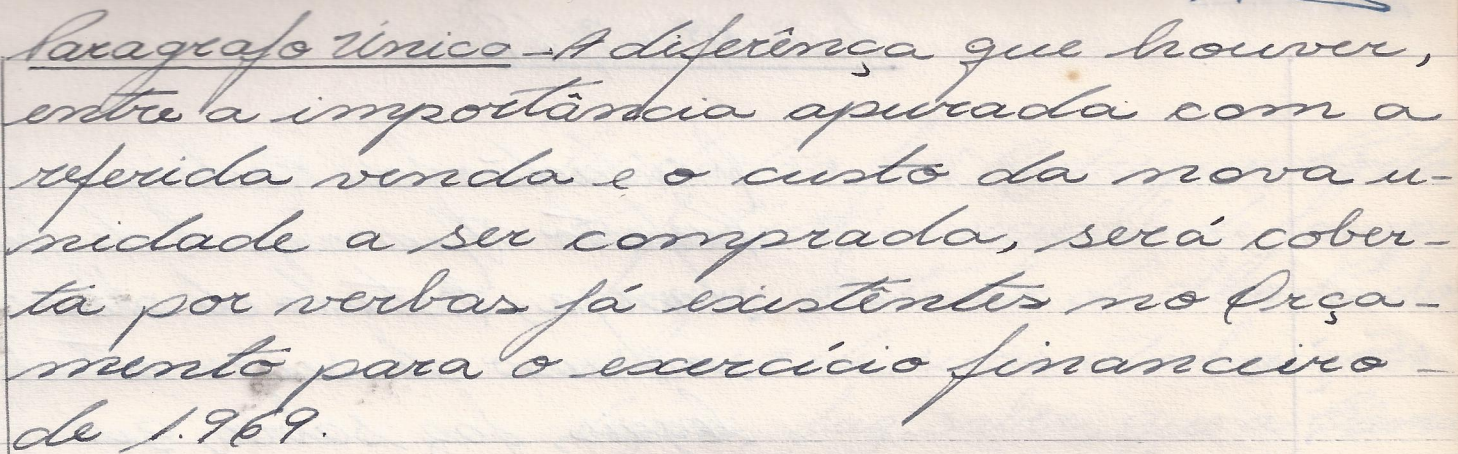 Paragrafo Único - A diferênça que houver,
entre a importância apurada com a
referida venda e o custo da nova u-
nidade a ser comprada, será cober-
ta por verbas já existêntes no Orça-
mento para o exercício financeiro -
de 1.969.